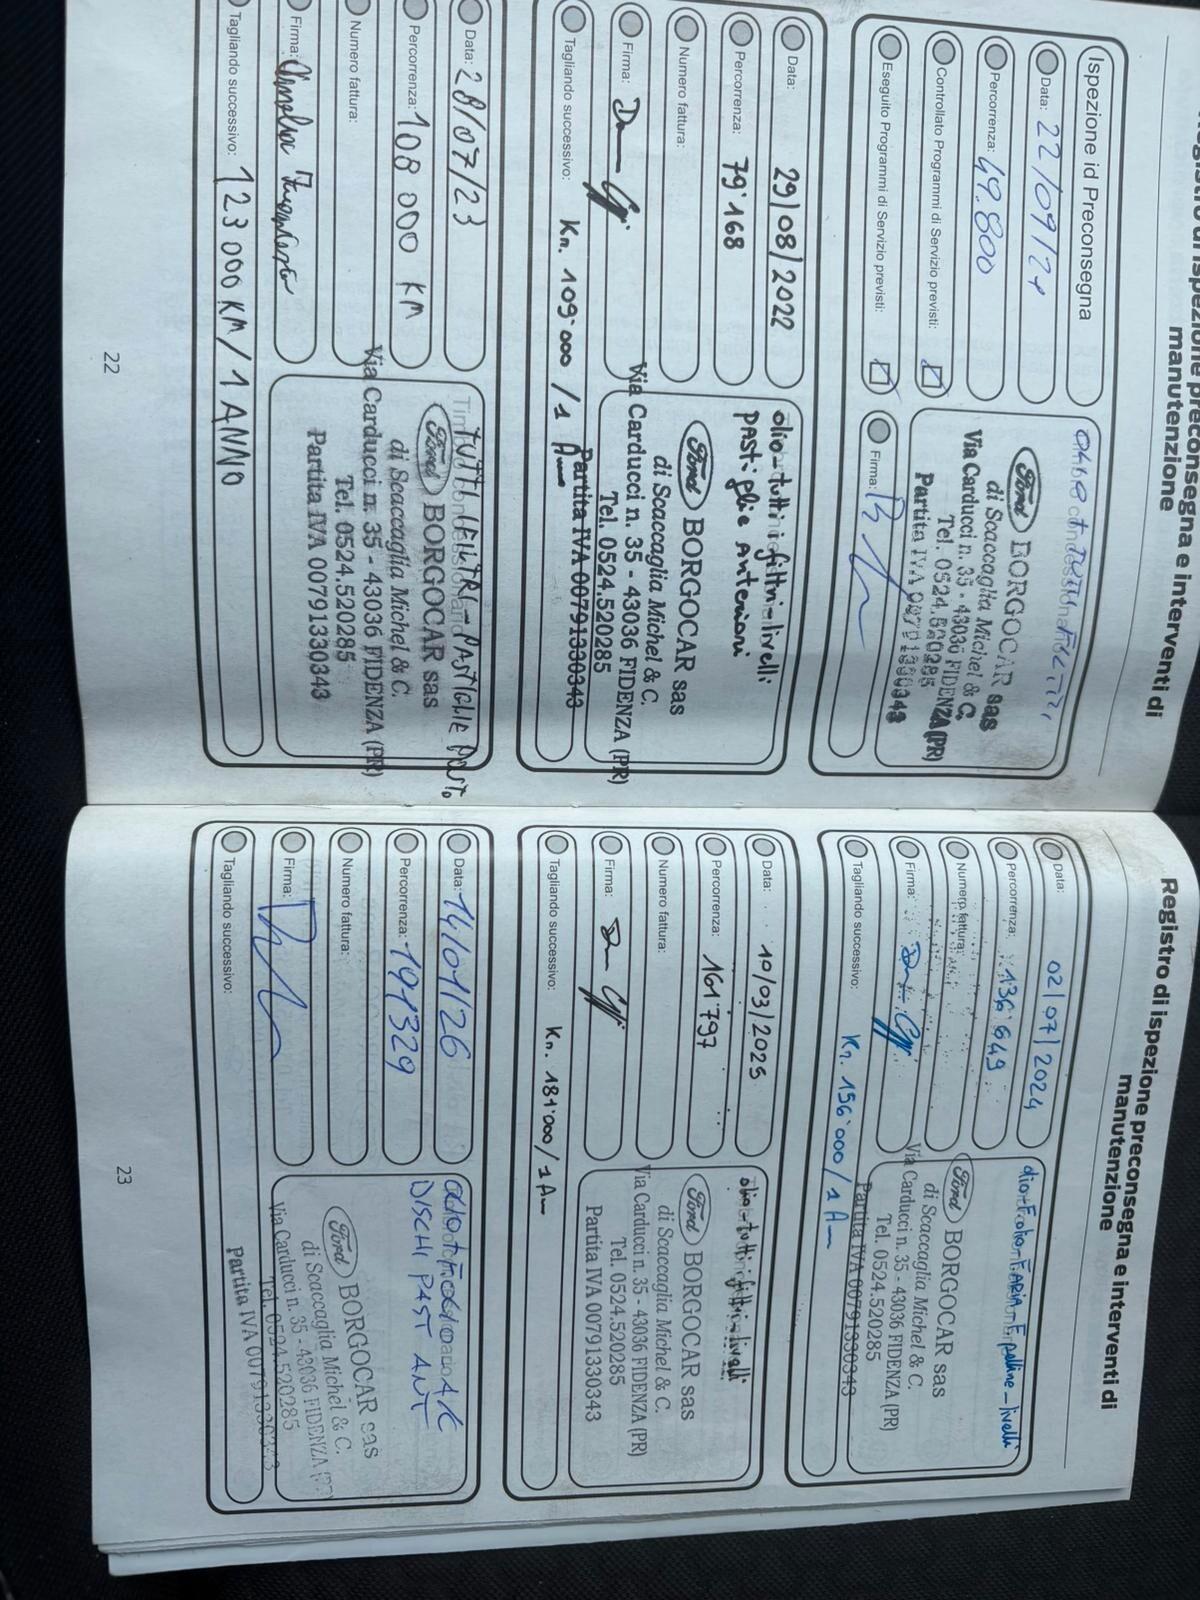 Registro di ispezione preconsegna e interventi di
manutenzione
Ispezione id Preconsegna
Data: 22/09/21
Percorrenza: 49.800
Controllato Programmi di Servizio previsti:
Eseguito Programmi di Servizio previsti:
Ford BORGOCAR sas
di Scaccaglia Michel & C.
Via Carducci n. 35 - 43036 FIDENZA (PR)
Tel. 0524.520285
Partita IVA 00791330343
Firma:
Data: 29/08/2022
Percorrenza: 79'168
Numero fattura:
Firma:
Tagliando successivo: Kn. 109'000 / 1 A
olio - tutti i filtri - livelli
PASTiglie Anteriori
Ford BORGOCAR sas
di Scaccaglia Michel & C.
Via Carducci n. 35 - 43036 FIDENZA (PR)
Tel. 0524.520285
Partita IVA 00791330343
Data: 28/07/23
Percorrenza: 108 000 KM
Numero fattura:
Firma:
Tagliando successivo: 123 000 KM / 1 ANNO
TUTTI I FILTRI - PASTIGLIE POST.
Ford BORGOCAR sas
di Scaccaglia Michel & C.
Via Carducci n. 35 - 43036 FIDENZA (PR)
Tel. 0524.520285
Partita IVA 00791330343
22
Registro di ispezione preconsegna e interventi di
manutenzione
Data: 02/07/2024
Percorrenza: 136'649
Numero fattura:
Firma:
Tagliando successivo: Kn. 156'000 / 1 A
olio - F.olio - F.ARIA - F.polline - livelli
Ford BORGOCAR sas
di Scaccaglia Michel & C.
Via Carducci n. 35 - 43036 FIDENZA (PR)
Tel. 0524.520285
Partita IVA 00791330343
Data: 10/03/2025
Percorrenza: 161'797
Numero fattura:
Firma:
Tagliando successivo: Kn. 181'000 / 1 A
olio - tutti i filtri - livelli
Ford BORGOCAR sas
di Scaccaglia Michel & C.
Via Carducci n. 35 - 43036 FIDENZA (PR)
Tel. 0524.520285
Partita IVA 00791330343
Data: 14/01/26
Percorrenza: 191329
Numero fattura:
Firma:
Tagliando successivo:
DISCHI PAST ANT
Ford BORGOCAR sas
di Scaccaglia Michel & C.
Via Carducci n. 35 - 43036 FIDENZA (PR)
Tel. 0524.520285
Partita IVA 00791330343
23